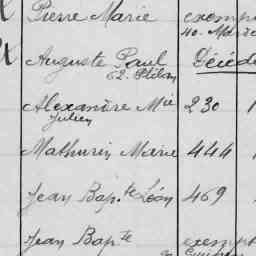 Pierre Marie exemp
40-
Auguste Paul Décéd
62.
Alexandre Mie 230
Julien
Mathurin Marie 444
Jean Bap.te Léon 469
Jean Bapte exempt